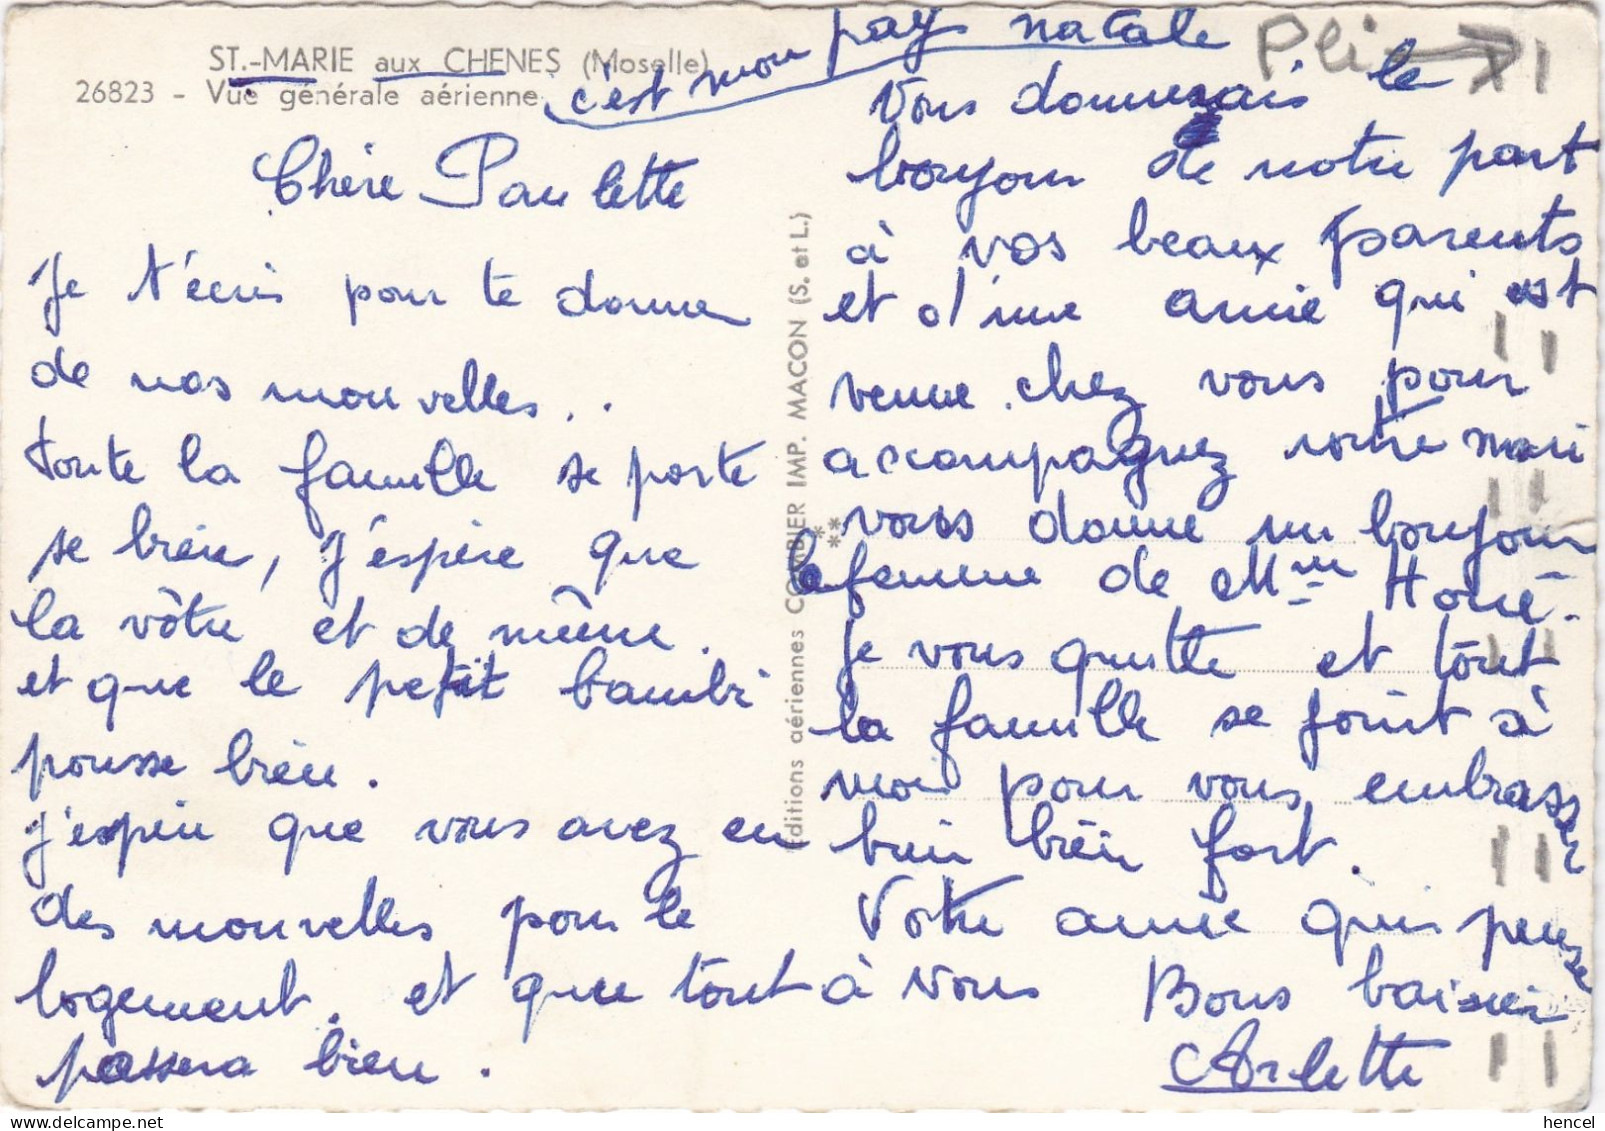 ST.-MARIE aux CHENES (Moselle)
26823 - Vue générale aérienne
c'est mon pay natale
Pli
Chère Paulette
Je t'écris pour te donner
de nos nouvelles..
toute la famille se porte
se bien, j'espère que
la vôtre et de même.
et que le petit bambi
pousse bien.
j'espère que vous avez eu
des nouvelles pour le
logement. et que tout
passera bien.
Editions aériennes COMBIER IMP. MACON (S. et L.)
Vous donnerais le
bonjour de notre part
à vos beaux parents
et d'une amie qui est
venue chez vous pour
accompagnez votre mari
vous donne un bonjour
la femme de Mm Horé.
Je vous quitte et tout
la famille se joint à
moi pour vous embrasser
bien bien fort.
Votre amie qui pense
à vous Bons baiser
Arlette
hencel